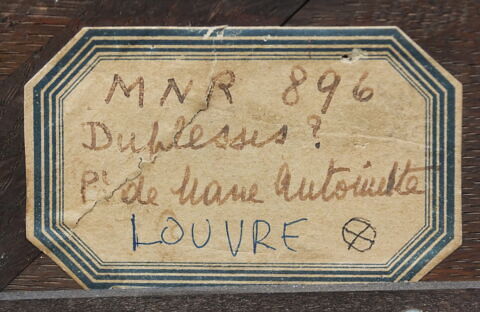 MNR 896
Duplessis ?
Pt de Marie Antoinette
LOUVRE